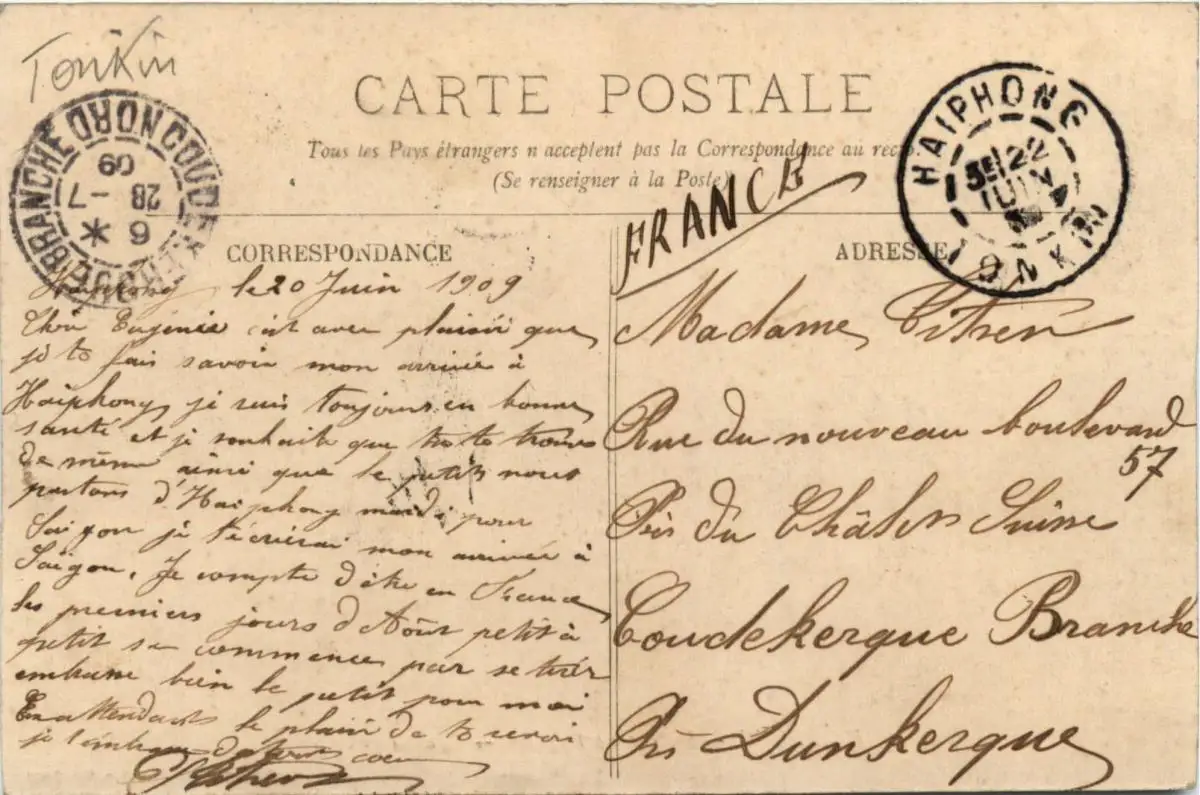 Tonkin
CARTE POSTALE
Tous les Pays étrangers n acceptent pas la Correspondance au recto.
(Se renseigner à la Poste)
COUDEKERQUE BRANCHE NORD
6 *
28 -7
09
HAIPHONG
5E 22
JUIN
TONKIN
FRANCE
CORRESPONDANCE
Haiphong le 20 Juin 1909
Chère Eugénie c'est avec plaisir que
je te fais savoir mon arrivée à
Haiphong, je suis toujours en bonne
santé et je souhaite que tu te trouves
de même ainsi que le petit nous
partons d'Haiphong mardi pour
Saigon je t'écrierai mon arrivée à
Saigon, Je compte d'être en France
les premiers jours d'Août petit à
petit sa commence par se tirer
embrasse bien le petit pour moi
En attendant le plaisir de te revoir
je t'embrasse de tout coeur
ADRESSE
Madame
Rue du nouveau boulevard
57
Près du Châlet Suisse
Coudekerque Branche
Près Dunkerque